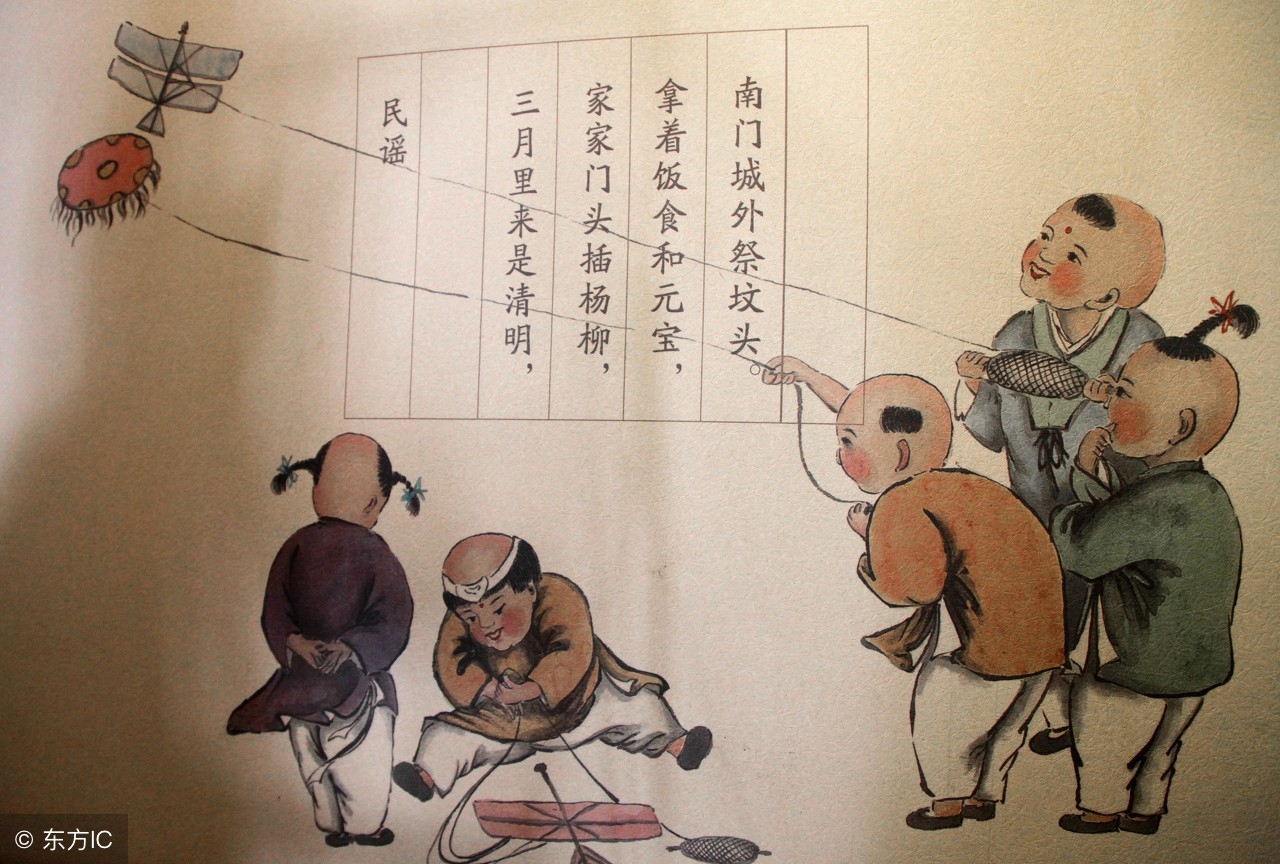 民谣
三月里来是清明，
家家门头插杨柳，
拿着饭食和元宝，
南门城外祭坟头。
© 东方IC